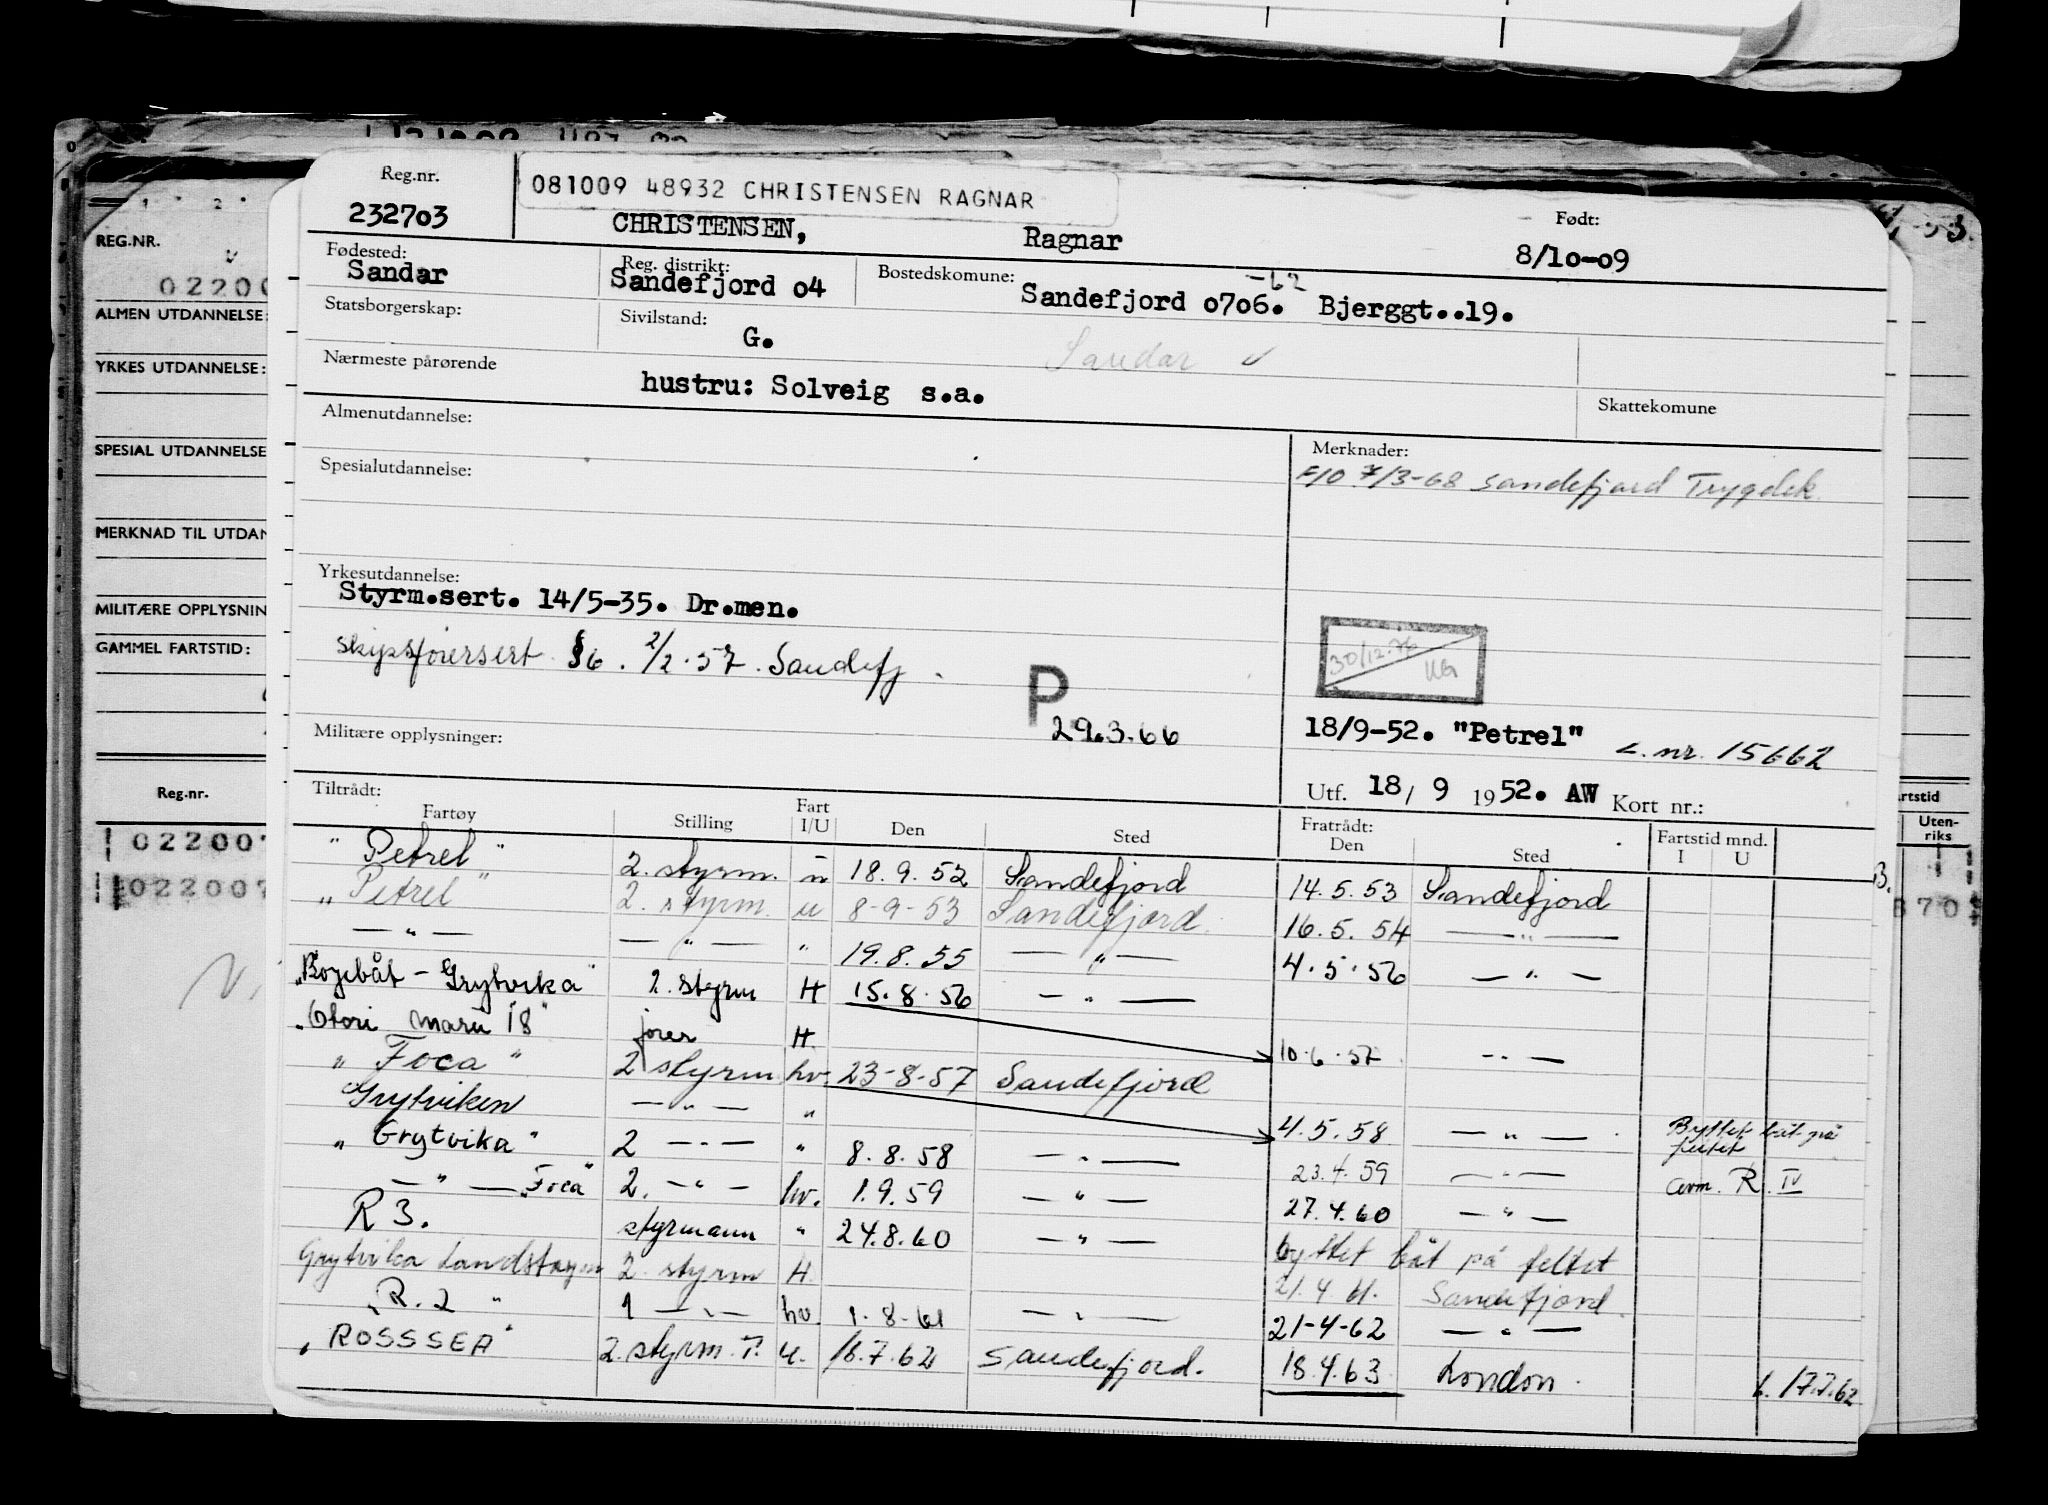 Reg.nr.
232703
081009 48932 CHRISTENSEN RAGNAR
CHRISTENSEN, Ragnar
Født:
8/10-09
Fødested:
Sandar
Reg. distrikt:
Sandefjord 04
Bostedskomune:
-62
Sandefjord 0706. Bjerggt..19.
Statsborgerskap:
Sivilstand:
G.
Sandar
Nærmeste pårørende
hustru: Solveig s.a.
Skattekomune
Almenutdannelse:
Merknader:
7/3-68 Sandefjord Trygdek
Spesialutdannelse:
Yrkesutdannelse:
Styrm.sert. 14/5-35. Dr.men.
skipsførersert §6. 2/2.57. Sandefj.
30/12.76
P
29.3.66
Militære opplysninger:
18/9-52. "Petrel" L.nr. 15662
Utf. 18/ 9 1952. AW Kort nr.:
Tiltrådt: Fratrådt: Fartstid mnd.
Fartøy Stilling Fart I/U Den Sted Den Sted I U
" Petrel " 2. styrm. u 18.9.52 Sandefjord 14.5.53 Sandefjord
" Petrel " 2. styrm. u 8-9-53 Sandefjord. 16.5.54 — " —
— " — — " — " 19.8.55 — " — 4.5.56 — " —
"Bøyebåt - Grytvika" 2. styrm H 15.8.56 — " —
maru 18" H. 10.6.57 — " —
" Foca " 2 styrm hv. 23-8-57 Sandefjord
Grytviken — " — " 4.5.58 — " — Byttet båt på feltet
" Grytvika " 2 — " — " 8.8.58 — " — 23.4.59 — " — R. IV
— " — "Foca" 2. — " — hv. 1.9.59 — " — 27.4.60 — " —
R 3. styrmann " 24.8.60 — " — byttet båt på feltet
Grytvika Landstasjon 2. styrm H. 21.4.61. Sandefjord.
"R. 2 " 1 — " — hv. 1.8.61 — " — 21-4-62 — " —
"ROSSSEA" 2. styrm. T. u. 18.7.62 Sandefjord. 18.4.63 London. 17.7.62
REG.NR.
ALMEN UTDANNELSE:
YRKES UTDANNELSE:
SPESIAL UTDANNELSE
MERKNAD TIL UTDAN
MILITÆRE OPPLYSNIN
GAMMEL FARTSTID:
Reg.nr.
02200
022007
rtstid
Uten-
riks
870